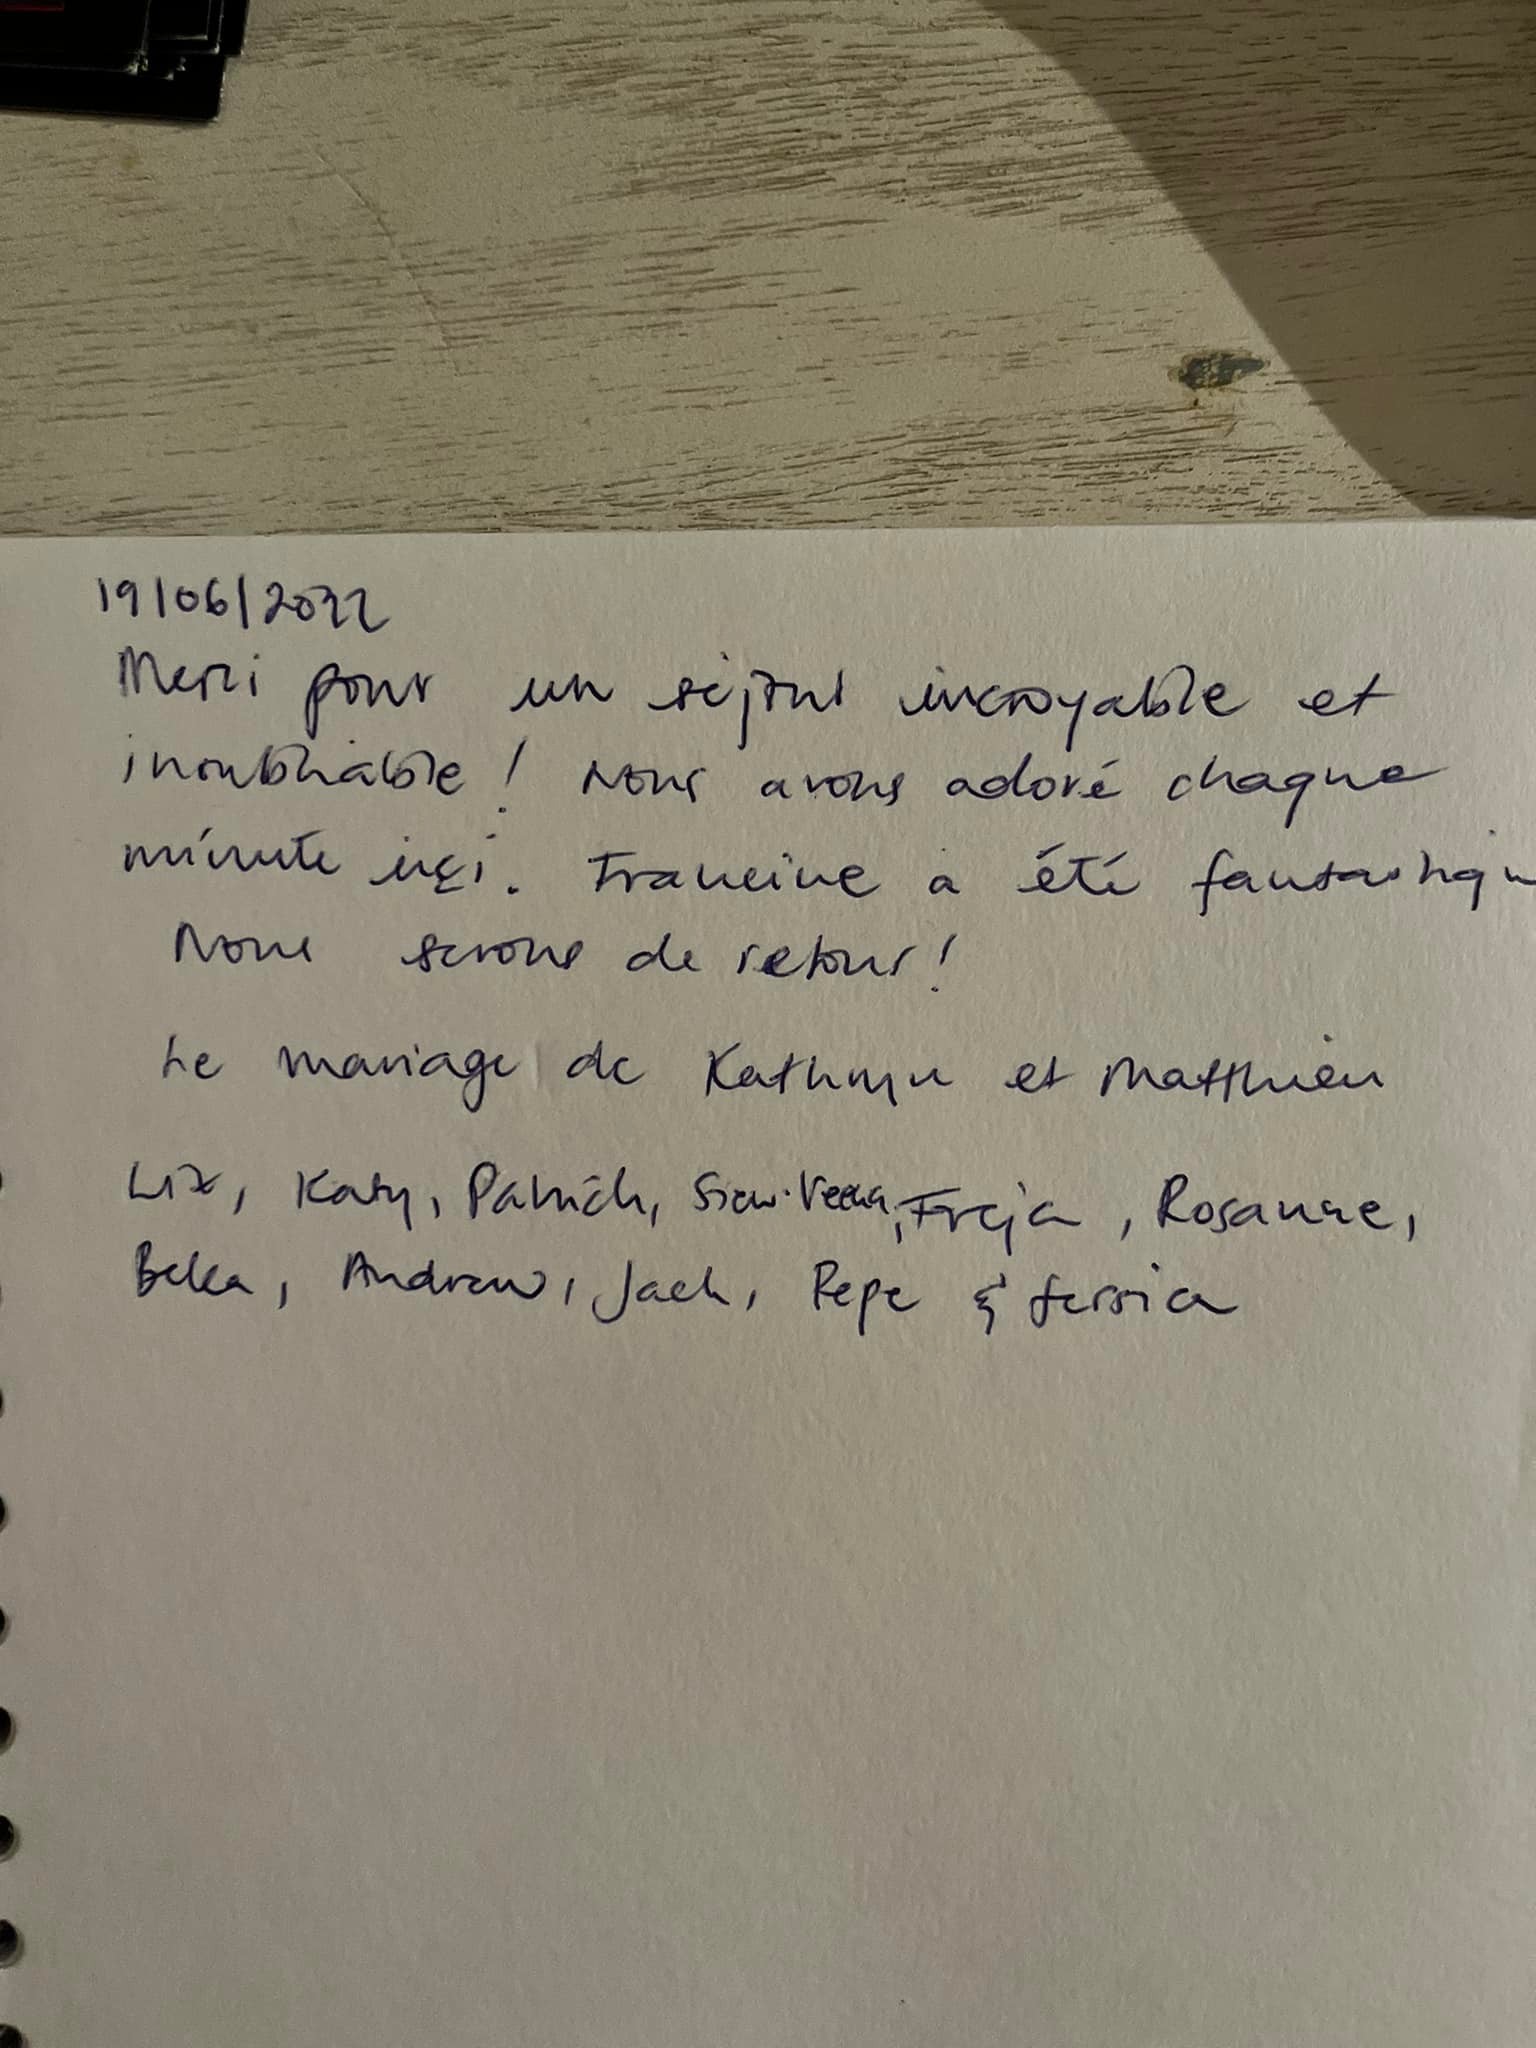 19/06/2022
Merci pour un séjour incroyable et
inoubliable ! Nous avons adoré chaque
minute içi. Francine a été fantastiqu
Nous serons de retour !
Le mariage de Kathryn et Matthieu
Liz, Katy, Patrick, Siew-Veena, Freja, Rosanne,
Beka, Andrew, Jack, Pepe & Jessica